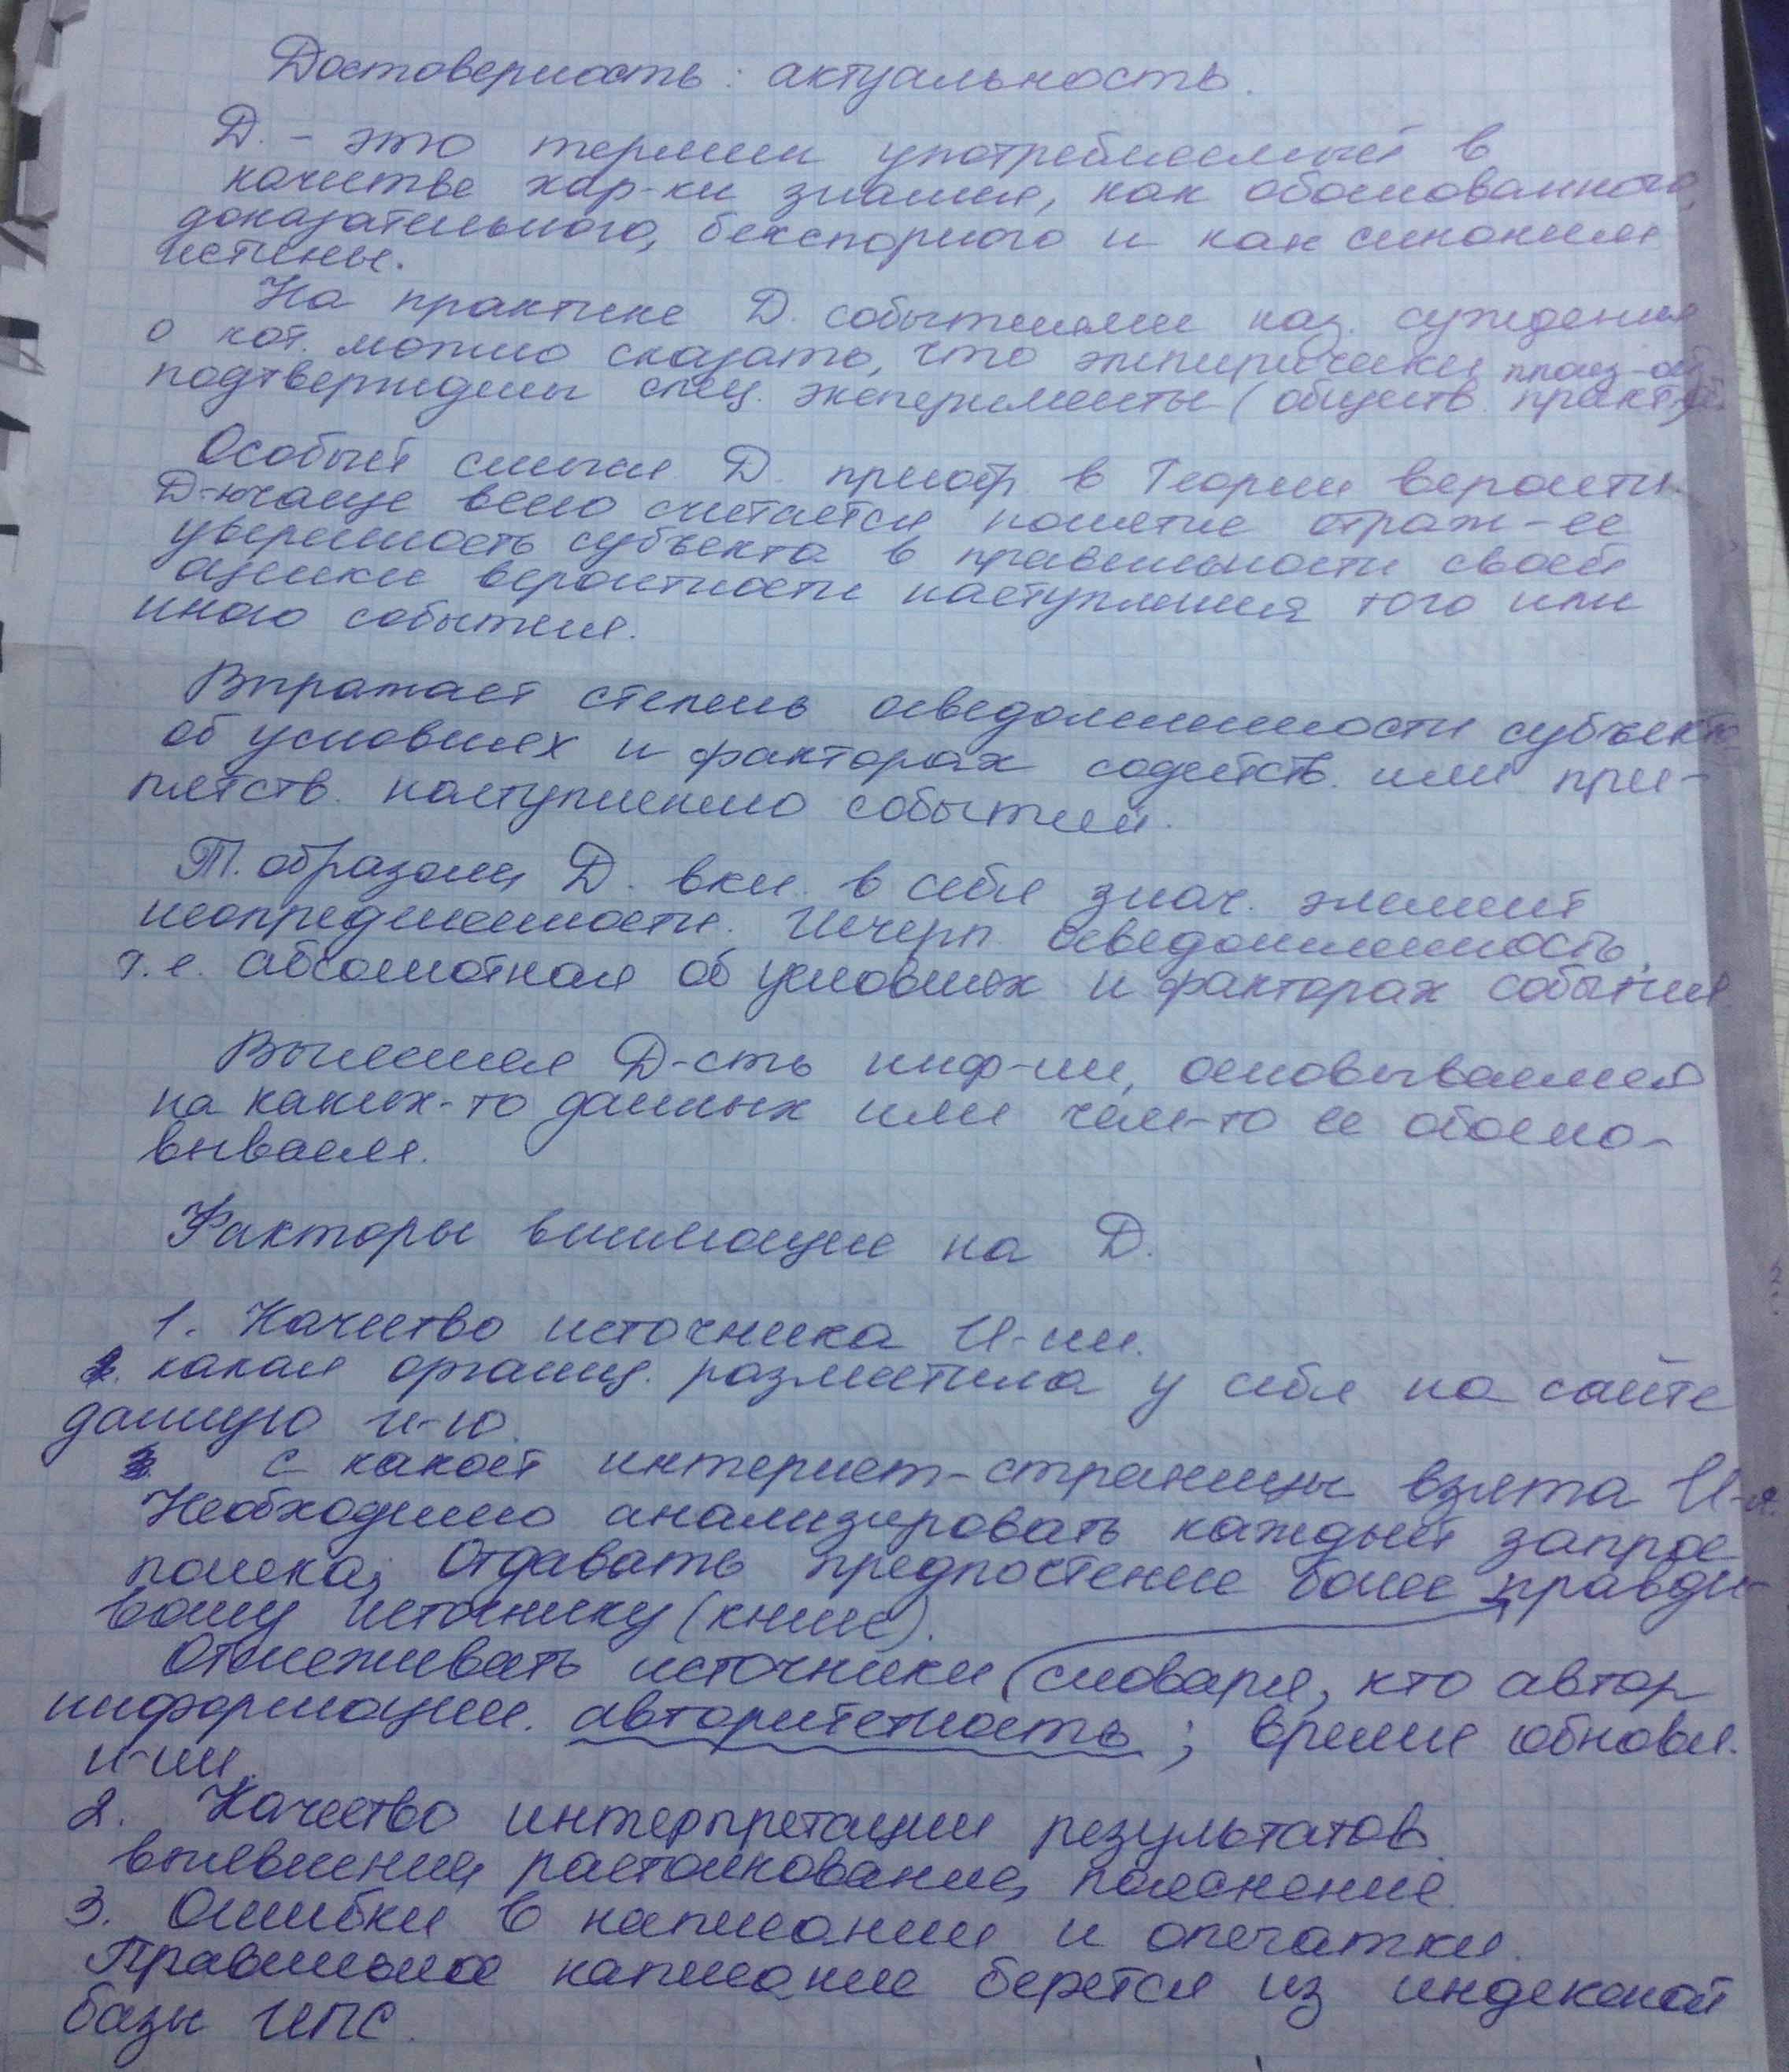 Достоверность : актуальность.
Д. – это термин употребляемый в
качестве хар-ки знания, как обоснованного,
доказательного, бесспорного и как синоним
истины.
На практике Д. событиями наз. суждения
о кот. можно сказать, что эмпирически
подтверждены спец. эксперименты (обществ. практ.
Особый смысл Д. приобр. в Теории вероятн.
чаще всего считается понятие отраж-ее
уверенность субъекта в правильности своей
оценки вероятности наступления того или
иного события.
Выражает степень осведомленности субъекта
об условиях и факторах содейств. или пре-
пятств. наступлению событий.
Т. образом, Д. вкл. в себя знач. элемент
неопределенности. Исчерп. осведомленность,
т.е. абсолютная об условиях и факторах события
Выясняя Д-сть инф-ии, основываемся
на каких-то данных или чем-то ее обосно-
вываем.
Факторы влияющие на Д.
1. Качество источника И-ии.
какая организ. разместила у себя на сайте
данную и-ю.
с какой интернет-страницы взята И-я.
Необходимо анализировать каждый запрос
поиска; Отдавать предпочтение более правди-
вому источнику (книге).
Отслеживать источники (словаря, кто автор
информации. авторитетность ; время обновл.
и-ии.
2. Качество интерпретации результатов.
выявление, растолкование, пояснение.
3. Ошибки в написании и опечатки.
Правильное написание берется из индексной
базы ИПС.